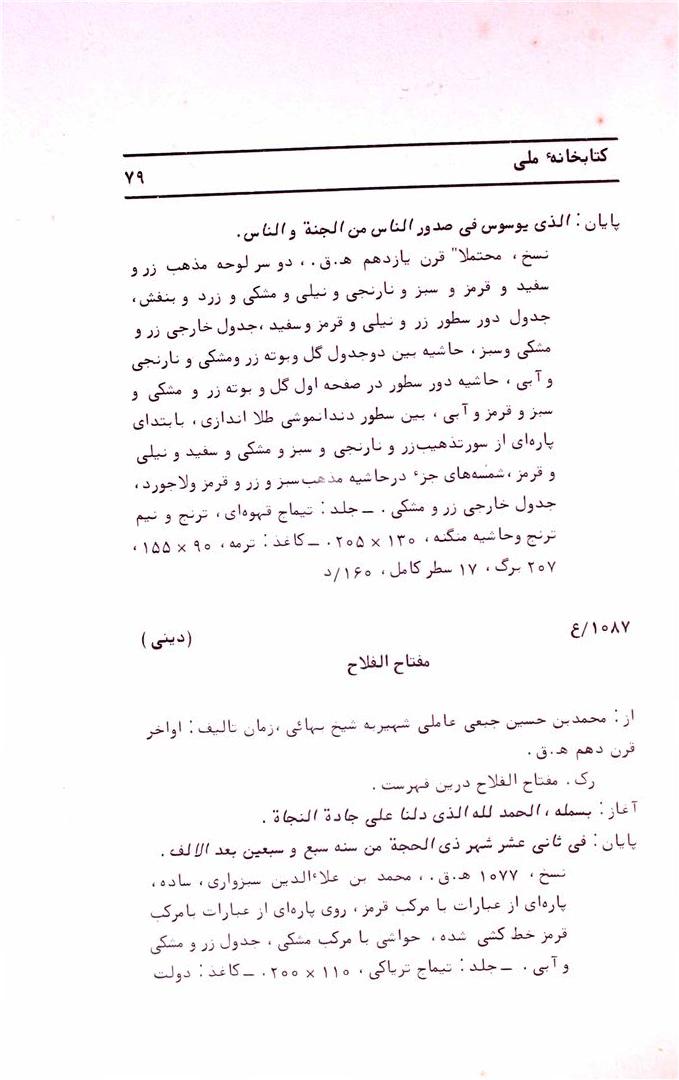 کتابخانهٔ ملی
۷۹
پایان: الذی یوسوس فی صدور الناس من الجنة و الناس.
نسخ، محتملا" قرن یازدهم ه.ق.، دو سر لوحه مذهب زر و
سفید و قرمز و سبز و نارنجی و نیلی و مشکی و زرد و بنفش،
جدول دور سطور زر و نیلی و قرمز و سفید، جدول خارجی زر و
مشکی و سبز، حاشیه بین دو جدول گل و بوته زر و مشکی و نارنجی
و آبی، حاشیه دور سطور در صفحه اول گل و بوته زر و مشکی و
سبز و قرمز و آبی، بین سطور دندانموشی طلا اندازی، بابتدای
پاره‌ای از سور تذهیب زر و نارنجی و سبز و مشکی و سفید و نیلی
و قرمز، شمسه‌های جزء در حاشیه مذهب سبز و زر و قرمز و لاجورد،
جدول خارجی زر و مشکی. ــ جلد: تیماج قهوه‌ای، ترنج و نیم
ترنج و حاشیه منگنه، ۱۳۰ × ۲۰۵. ــ کاغذ: ترمه، ۹۰ × ۱۵۵،
۲۰۷ برگ، ۱۷ سطر کامل، ۱۶۰/د
۱۰۸۷/ع
(دینی)
مفتاح الفلاح
از: محمدبن حسین جبعی عاملی شهیربه شیخ بهائی، زمان تالیف: اواخر
قرن دهم ه.ق.
رک. مفتاح الفلاح درین فهرست.
آغاز: بسمله، الحمد لله الذی دلنا علی جادة النجاة.
پایان: فی ثانی عشر شهر ذی الحجة من سنه سبع و سبعین بعد الالف.
نسخ، ۱۰۷۷ ه.ق.، محمد بن علاءالدین سبزواری، ساده،
پاره‌ای از عبارات با مرکب قرمز، روی پاره‌ای از عبارات بامرکب
قرمز خط کشی شده، حواشی با مرکب مشکی، جدول زر و مشکی
و آبی. ــ جلد: تیماج تریاکی، ۱۱۰ × ۲۰۰. ــ کاغذ: دولت